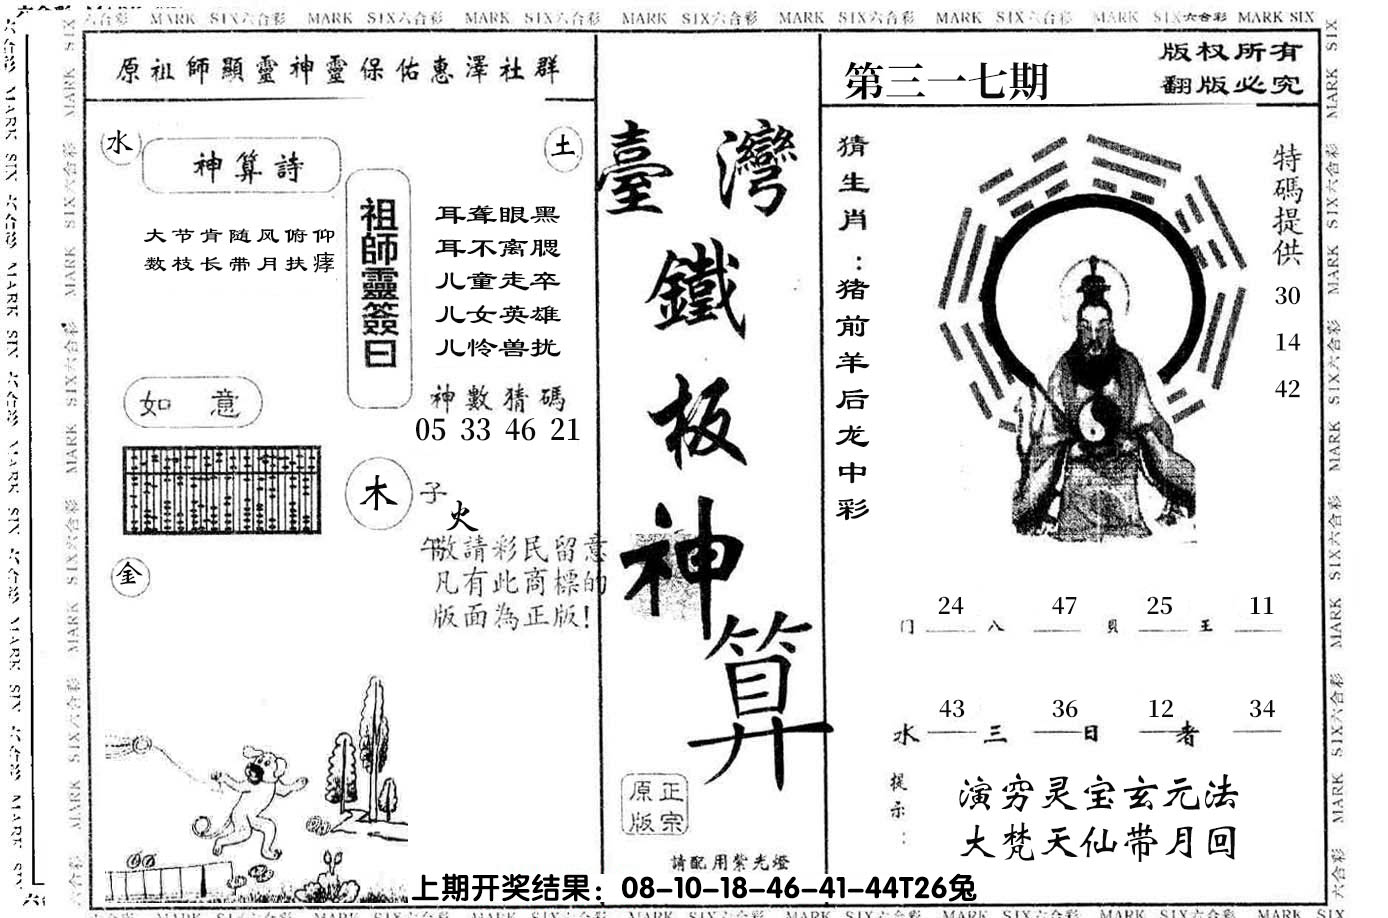 原祖師顯靈神靈保佑惠澤社群
水
神算詩
土
大节肯随风俯仰
数枝长带月扶痔
祖師靈簽曰
耳聋眼黑
耳不离腮
儿童走卒
儿女英雄
儿怜兽扰
神數猜碼
05 33 46 21
如 意
木
子
火
午
金
敬請彩民留意
凡有此商標的
版面為正版!
臺灣
鐵
板
神
算
正宗
原版
請配用紫光燈
第三一七期
版权所有
翻版必究
猜生肖:猪前羊后龙中彩
特碼提供
30
14
42
24 47 25 11
门 八 貝 王
43 36 12 34
水 三 日 者
提示:
演穷灵宝玄元法
大梵天仙带月回
上期开奖结果：08-10-18-46-41-44T26兔
MARK SIX六合彩 MARK SIX六合彩 MARK SIX六合彩 MARK SIX六合彩 MARK SIX六合彩 MARK SIX六合彩 MARK SIX六合彩 MARK SIX